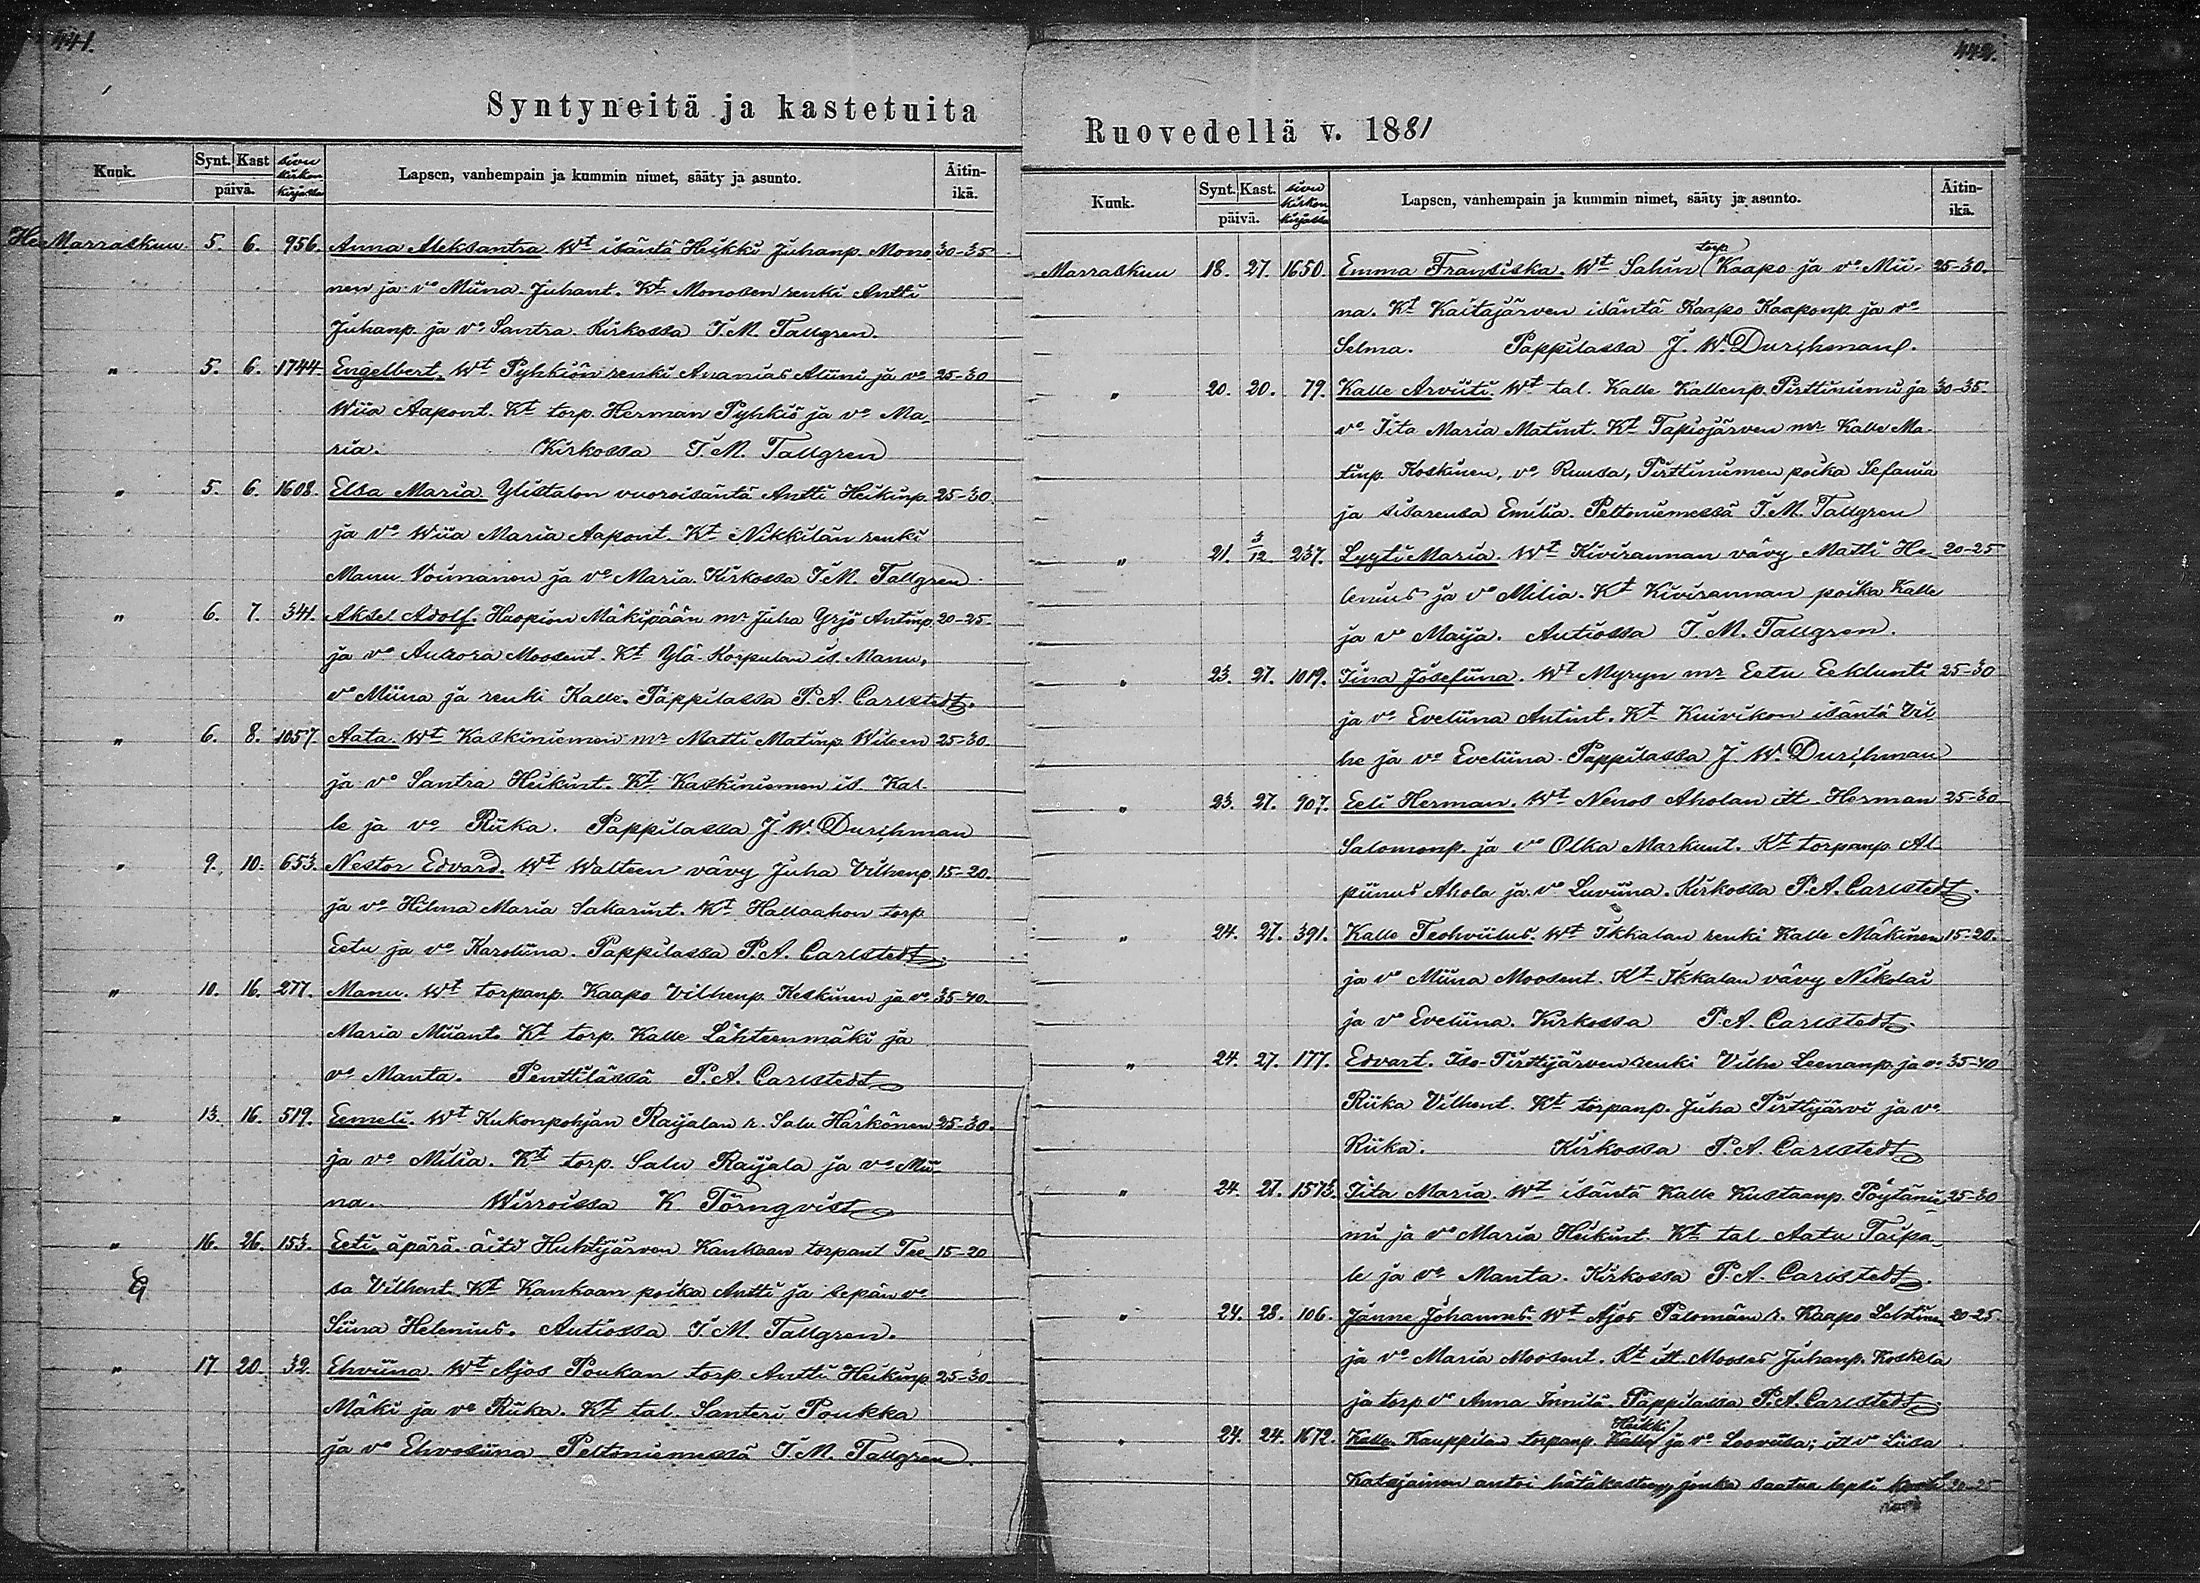 441.
Syntyneitä ja kastetuita
Kuuk. Synt. Kast päivä. sivu kirkon kirjassa Lapsen, vanhempain ja kummin nimet, sääty ja asunto. Äitin-ikä.
Marraskuu 5. 6. 956. Anna Aleksantra Wt isäntä Heikki Juhanp. Mono 30-35
nen ja vo Miina Juhant. Kt Monosen renki Antti
Juhanp. ja vo Santra. Kirkossa I. M. Tallgren.
" 5. 6. 1744. Engelbert. Wt Pyhkiön renki Ananias Aliini ja vo 25-30
Wiia Aapont. Kt torp. Herman Pyhkiö ja vo Ma-
ria. Kirkossa I. M. Tallgren
" 5. 6. 1608. Elsa Maria Ylistalon vuoroisäntä Antti Heikinp. 25-30.
ja vo Wiia Maria Aapont. Kt Nikkilän renki
Manu Voimanen ja vo Maria. Kirkossa I. M. Tallgren
" 6. 7. 341. Aksel Adolf. Haapion Mäkipään mr Juha Yrjö Antinp. 20-25.
ja vo Aurora Moosent. Kt Ylä-Korpulan is. Manu,
vo Miina ja renki Kalle. Pappilassa P. A. Carlstedt.
" 6. 8. 1057. Aata. Wt Kaskiniemen mr Matti Matinp. Wileen 25-30.
ja vo Santra Heikint. Kt Kaskiniemen is. Kal-
le ja vo Riika. Pappilassa J. W. Durchman
" 9. 10. 653. Nestor Edvard. Wt Walteen vävy Juha Vilhenp. 15-20.
ja vo Hilma Maria Sakarint. Kt Hallaahon torp.
Eetu ja vo Karoliina. Pappilassa P. A. Carlstedt.
" 10. 16. 277. Manu. Wt torpanp. Kaapo Vilhenp. Keskinen ja vo 35-40.
Maria Miiant. Kt torp. Kalle Lähteenmäki ja
vo Manta. Penttilässä P. A. Carlstedt
" 13. 16. 519. Eemeli. Wt Kukonpohjan Raijalan r. Salu Härkönen 25-30.
ja vo Milia. Kt torp. Salu Raijala ja vo Mii-
na. Wirroissa K. Törnqvist
" 16. 26. 153. Eeti äpärä. äiti Huhtijärven Kankaan torpant Tee- 15-20
sa Vilhent. Kt Kankaan poika Antti ja sepän vo
Siina Helenius. Autiossa I. M. Tallgren.
" 17. 20. 32. Ehviina Wt Ajos Poukan torp. Antti Heikinp. 25-30
Mäki ja vo Riika. Kt tal. Santeri Poukka
ja vo Ehvosiina Peltoniemessä I. M. Tallgren.
442.
Ruovedellä v. 1881
Kuuk. Synt. Kast. päivä. sivu kirkon kirjassa Lapsen, vanhempain ja kummin nimet, sääty ja asunto. Äitin-ikä.
Marraskuu 18. 27. 1650. Emma Fransiska. Wt Sahin torp Kaapo ja vo Mii- 25-30.
na. Kt Kaitajärven isäntä Kaapo Kaaponp. ja vo
Selma. Pappilassa J. W. Durchman.
" 20. 20. 79. Kalle Arviiti. Wt tal. Kalle Kallenp. Pirttiniemi ja 30-35.
vo Iita Maria Matint. Kt Tapiojärven mr Kalle Ma-
tinp. Koskinen, vo Ruusa, Pirttiniemen poika Sefania
ja sisarensa Emilia. Peltoniemessä I. M. Tallgren
" 21. 3/12. 237. Lyyti Maria. Wt Kivirannan vävy Matti He- 20-25
lenius ja vo Milia. Kt Kivirannan poika Kalle
ja vo Maija. Autiossa I. M. Tallgren.
" 23. 27. 1019. Iina Josefiina. Wt Myryn mr Eetu Eeklunti 25-30
ja vo Eveliina Antint. Kt Kuivikon isäntä Vil
he ja vo Eveliina. Pappilassa J. W. Durchman
" 23. 27. 907. Eeli Herman. Wt Nenos Aholan itt. Herman 25-30
Salomonp. ja vo Olka Markunt. Kt torpanp. Al-
piinus Ahola ja vo Luviina. Kirkossa P. A. Carlstedt.
" 24. 27. 391. Kalle Teohviilus. Wt Ikkalan renki Kalle Mäkinen 15-20.
ja vo Miina Moosent. Kt Ikkalan vävy Nikolai
ja vo Eveliina. Kirkossa P. A. Carlstedt.
" 24. 27. 177. Edvart. Iso-Pirttijärven renki Vilhe Leenanp. ja vo 35-40
Riika Vilhent. Kt torpanp. Juha Pirttijärvi ja vo
Riika. Kirkossa P. A. Carlstedt
" 24. 27. 1573. Iita Maria. Wt isäntä Kalle Kustaanp. Pöytänie- 25-30
mi ja vo Maria Heikint. Kt tal. Aatu Taipa-
le ja vo Manta. Kirkossa P. A. Carlstedt.
" 24. 28. 106. Janne Johannes. Wt Ajos Palomäen r. Kaapo Lehtinen 20-25
ja vo Maria Moosent. Kt itt. Mooses Juhanp. Koskela
ja torp. vo Anna Innilä. Pappilassa P. A. Carlstedt
" 24. 24. 1672. Kalle Kauppilan torpanp. Kalle Heikki ja vo Looviisa; itt vo Liisa
Katajainen antoi hätäkasteen, jonka saatua lapsi 20-25